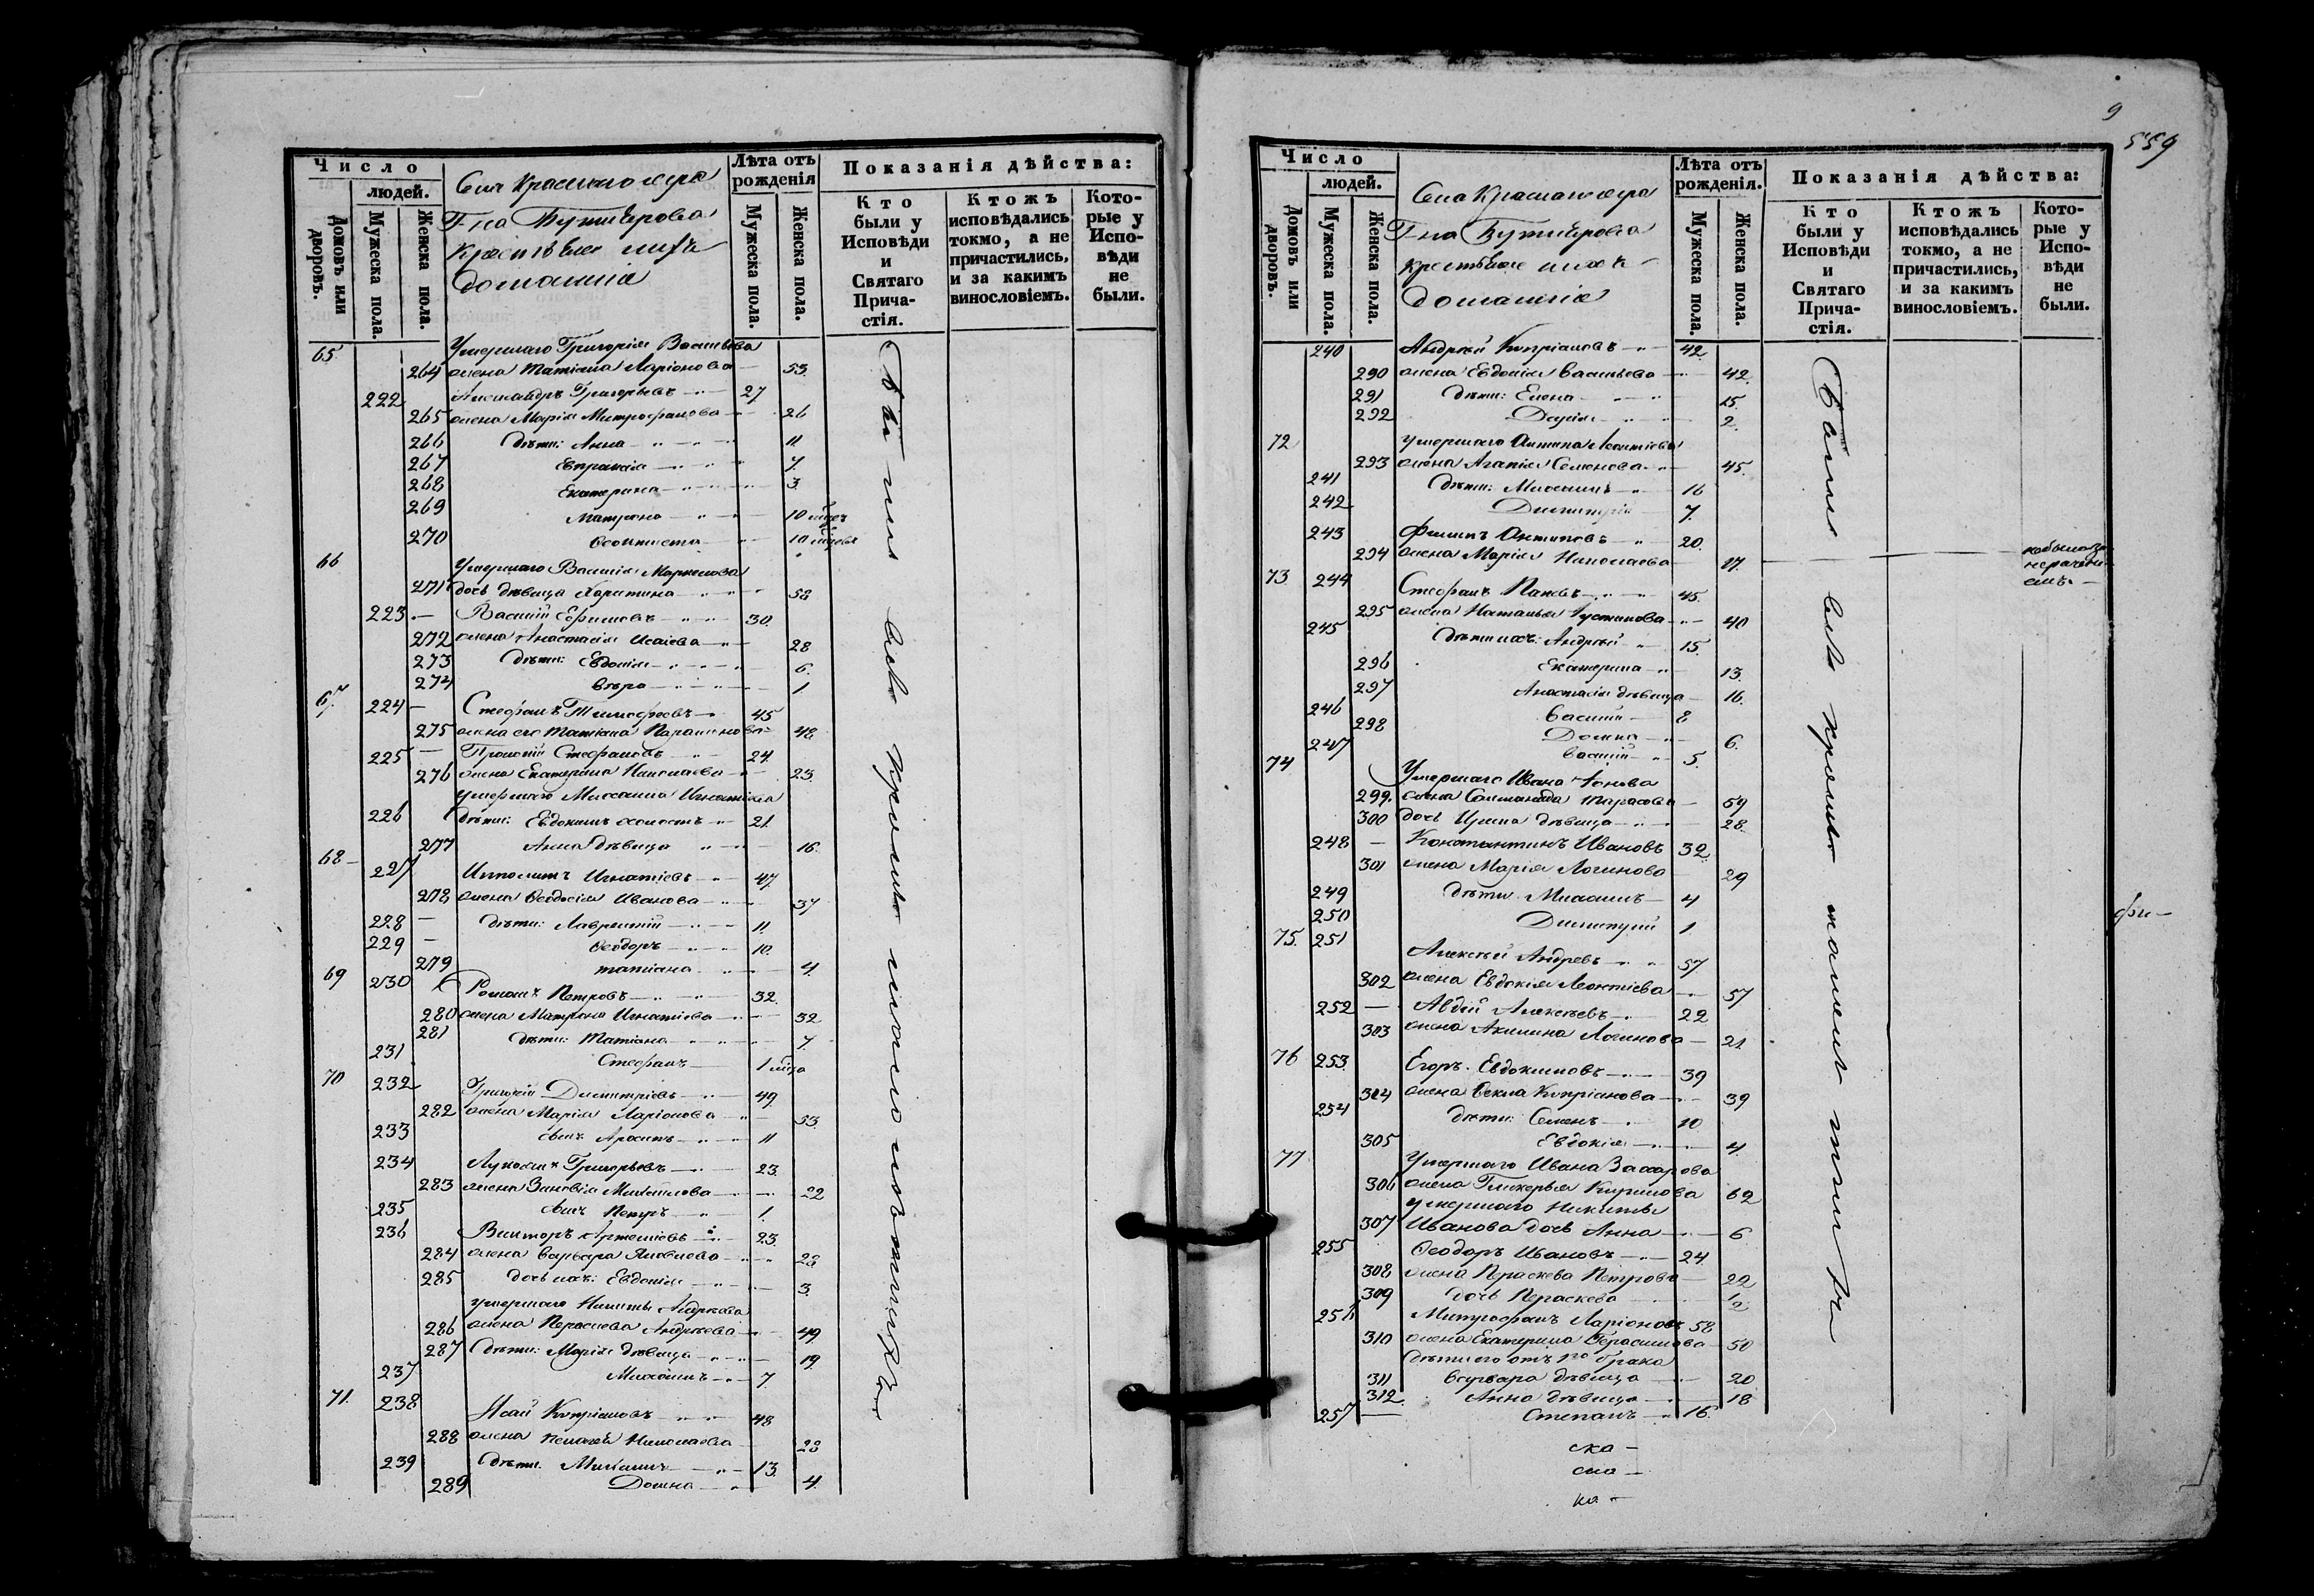 Число
людей.
Домовъ или дворовъ.
Мужеска пола.
Женска пола.
Села Краснаго яра
Г-на Бутлерова
крестьяне ихъ
домашніе
Лѣта отъ рожденія
Мужеска пола.
Женска пола.
Показанія дѣйства:
Кто были у Исповѣди и Святаго Причастія.
Ктожъ исповѣдались токмо, а не причастились, и за какимъ винословіемъ.
Которые у Исповѣди не были.
65. Умершаго Григорія Васильева
264 жена Татіана Ларіонова 53.
222 Александръ Григорьевъ 27
265 жена Марія Митрофанова 26
266 Дѣти: Анна 11
267 Евпраксія 7.
268 Екатерина 3.
269 Матрона 10
270 Ѳеоктиста 10
66 Умершаго Василія
271 дочь дѣвица Харитина 58
223. Василій Ефимовъ 30.
272 жена Анастасія Исаіева 28
273 Дѣти: Евдокія 6.
274 Вѣра 1
67. 224 Стефанъ Тимофеевъ 45
275 жена его Татіана 48
225 Прокопій Стефановъ 24.
276 жена Екатерина Николаева 23.
умершаго Михаила Игнатіева
226 дѣти: Евдокимъ холостъ 21.
277 Анна дѣвица 16.
68 227 Ипполитъ Игнатіевъ 47.
278 жена Ѳеодосія Иванова 37
228 дѣти: Лаврентій 11.
229 Ѳеодоръ 10.
279 татіана 4.
69 230 Романъ Петровъ 32.
280 жена Матрона Игнатіева 32
281 дѣти: Татіана 7.
231 Стефанъ 1
70 232 Григорій Димитріевъ 49.
282 жена Марія Ларіонова 53.
233 сынъ 11
234 Григорьевъ 23.
283 жена Зиновія 22
235 сынъ Петръ 1.
236 Викторъ Артеміевъ 23.
284 жена Варвара Яковлева 28
285 дочь ихъ: Евдокія 3.
умершаго Никиты Андреева
286 жена Параскева Андреева 49
287 Дѣти: Марія дѣвица 19.
237 Михаилъ 7.
71. 238 Исай Кипріановъ 48
288 жена Пелагея Николаева 28
239 дѣти. Михаилъ 13.
289 Домна 4.
9
559
Число
людей.
Домовъ или дворовъ.
Мужеска пола.
Женска пола.
Села Краснаго яра
Г-на Бутлерова
крестьяне ихъ
домашніе
Лѣта отъ рожденія.
Мужеска пола.
Женска пола.
Показанія дѣйства:
Кто были у Исповѣди и Святаго Причастія.
Ктожъ исповѣдались токмо, а не причастились, и за какимъ винословіемъ.
Которые у Исповѣди не были.
240 Андрей Кипріановъ 42.
290 жена Евдокія Васильева 42.
291 Дѣти: Елена 15.
292 Дарія 2.
72 умершаго Антипа Леонтіева
293 жена Агапія Семенова 45.
241 Дѣти: Михаилъ 16
242 Димитрій 7.
243 Филипъ Антиповъ 20.
294 жена Марія Николаева 17.
73. 244 Стефанъ 45.
295 жена Наталья Іустинова 40
245 Дѣти ихъ: Андрей 15.
296 Екатерина 13.
297 Анастасія дѣвица 16.
246 Василій 8
298 Домна 6.
247 Василій 5.
74 Умершаго Ивана Іонова
299. жена Соломанида Тарасова 59
300 дочь Ирина дѣвица 28.
248 Константинъ Ивановъ 32
301 жена Марія Логинова 29
249 дѣти Михаилъ 4
250 Димитрій 1.
75. 251 Алексѣй Андревъ 57
302 жена Евдокія Леонтіева 57
252 Авдѣй Алексѣевъ 22
303 жена Акилина Логинова 21
76 253 Егоръ Евдокимовъ 39
304 жена Ѳекла Кипріанова 39
254 дѣти: Семенъ 10
305 Евдокія 4.
77 Умершаго Ивана Захарова
306 жена Гликерья Кирилова 62
умершаго Никиты
307 Иванова дочь Анна 6
255 Ѳеодоръ Ивановъ 24.
308 жена Параскева Петрова 22
309 дочь Параскева
256 Митрофанъ Ларіоновъ 58
310 жена Екатерина Герасимова 50
дѣти его отъ 1го брака
311 Варвара дѣвица 20
312 Анна дѣвица 18
257 Степанъ 16.